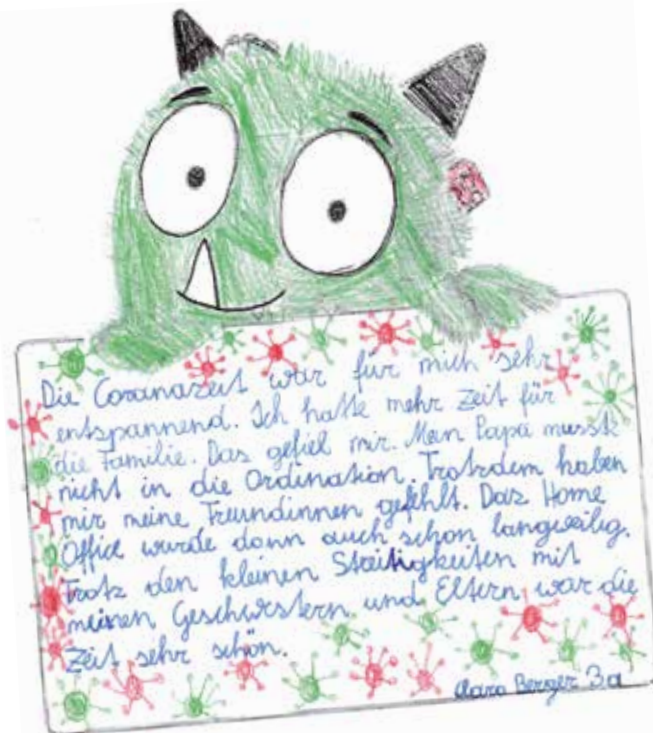 Die Coronazeit war für mich sehr
entspannend. Ich hatte mehr Zeit für
die Familie. Das gefiel mir. Mein Papa musste
nicht in die Ordination. Trotzdem haben
mir meine Freundinnen gefehlt. Das Home
Office wurde dann auch schon langweilig.
Trotz den kleinen Streitigkeiten mit
meinen Geschwistern und Eltern war die
Zeit sehr schön.
Clara Berger 3a